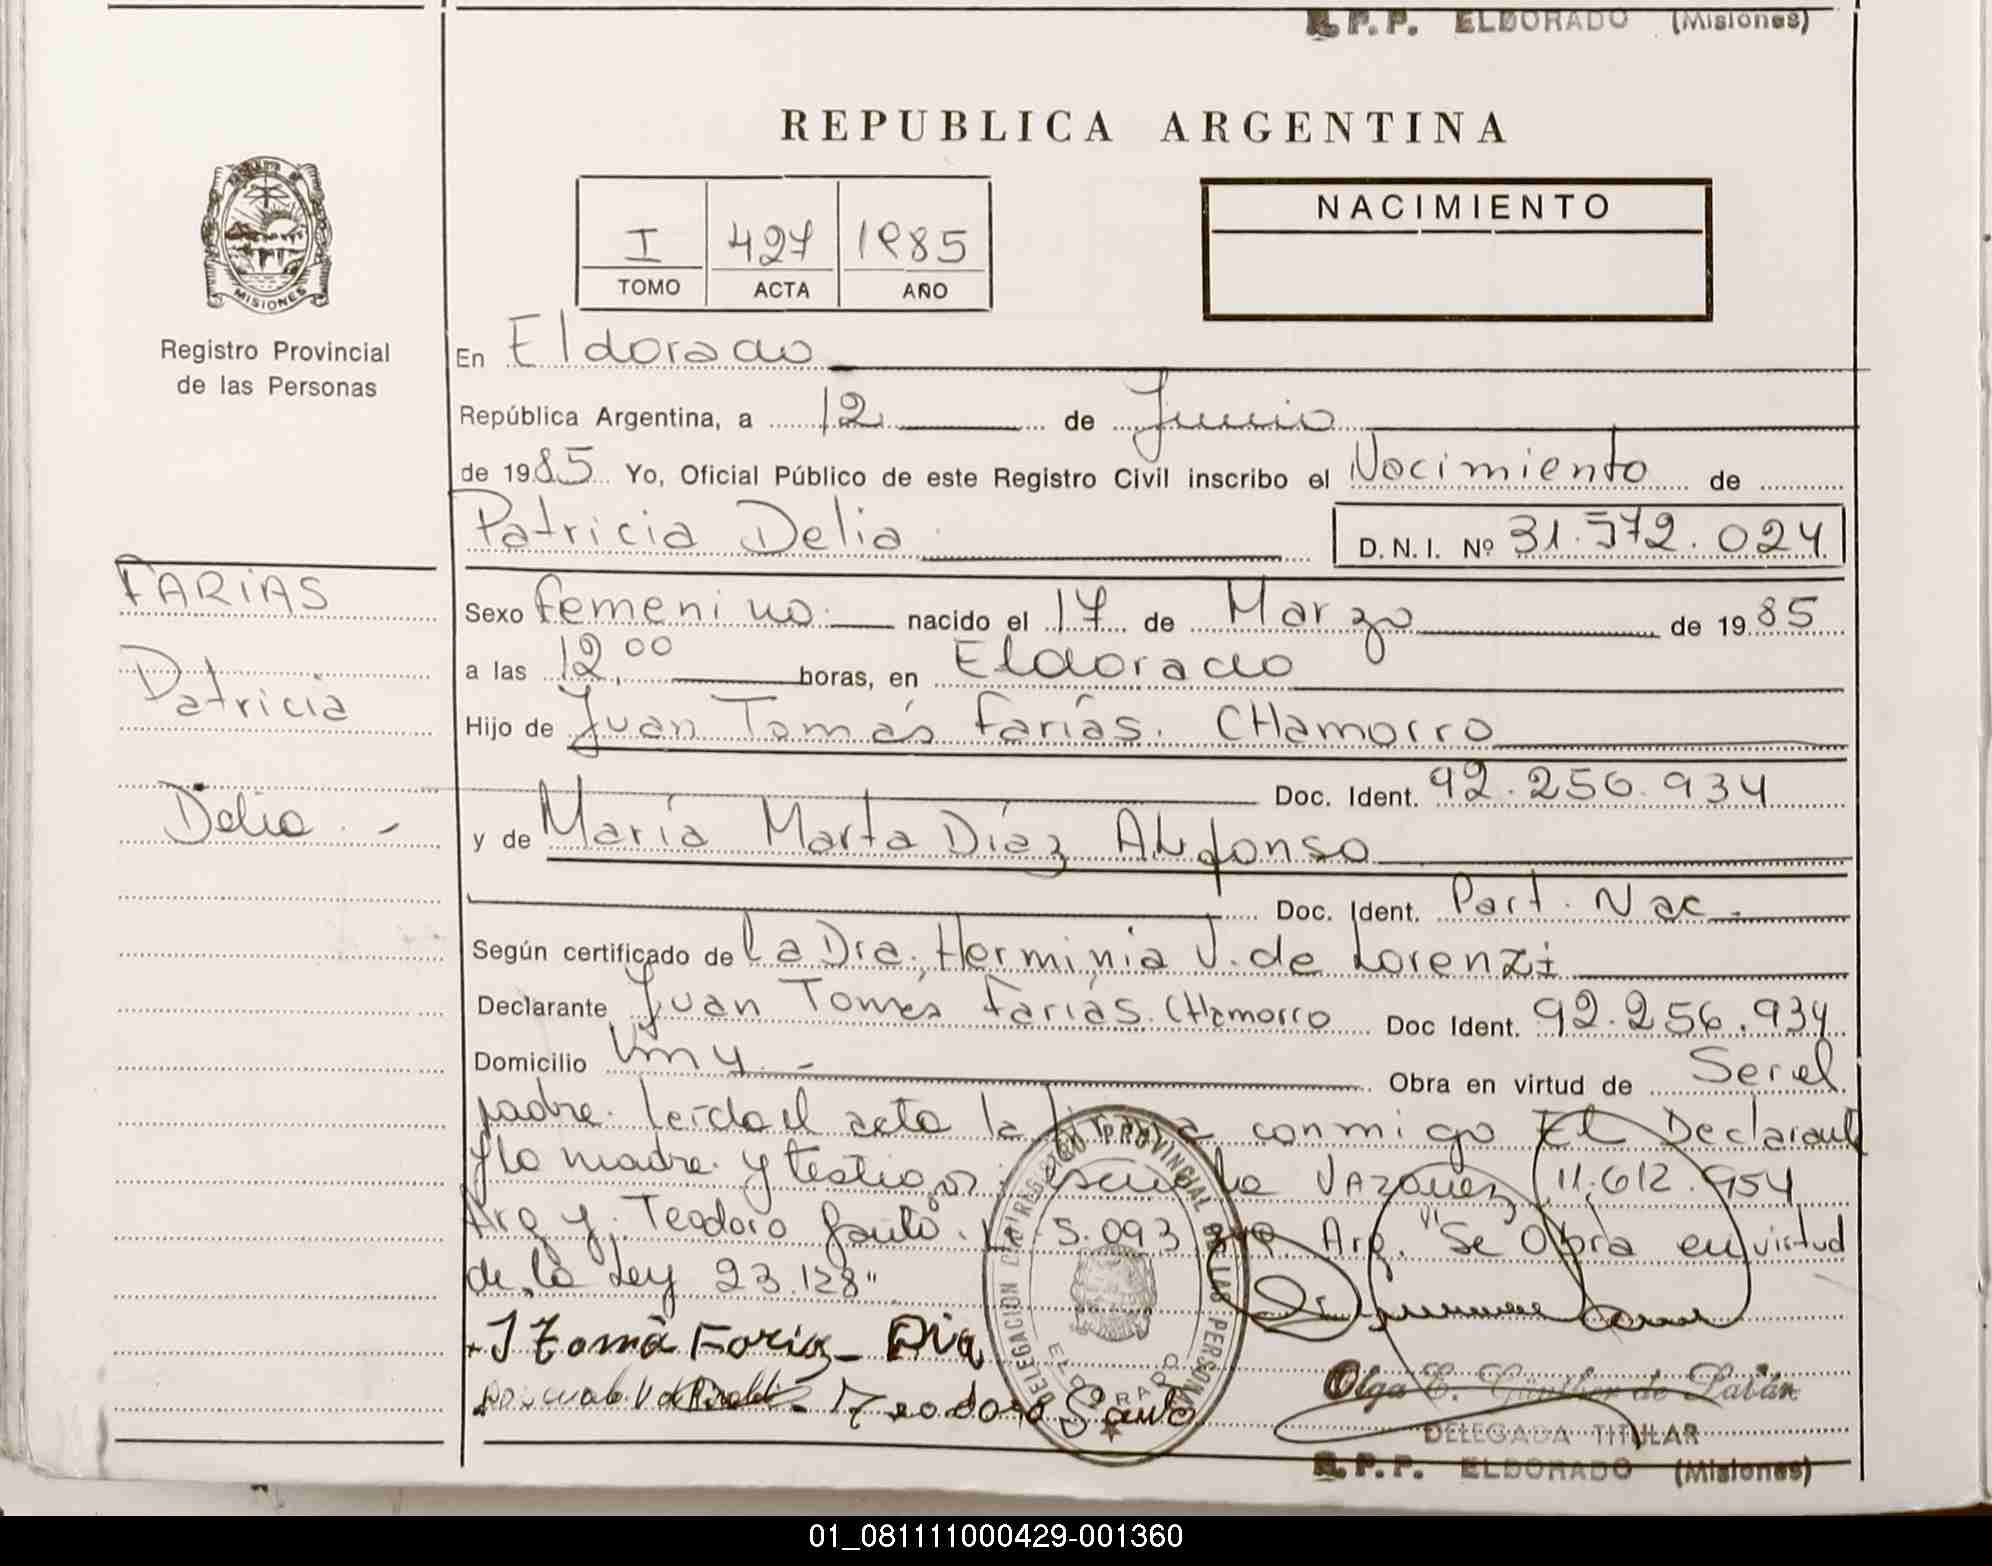 R.P.P. ELDORADO (Misiones)
REPUBLICA ARGENTINA
MISIONES
Registro Provincial
de las Personas
I 427 1985
TOMO ACTA AÑO
NACIMIENTO
En Eldorado
República Argentina, a 12 de Junio
de 1985 Yo, Oficial Público de este Registro Civil inscribo el Nacimiento de
Patricia Delia D.N.I. Nº 31.572.024
FARIAS
Patricia
Delia.-
Sexo femenino nacido el 17 de Marzo de 1985
a las 12,00 horas, en Eldorado
Hijo de Juan Tomás Farías. CHamorro
Doc. Ident. 92.256.934
y de María Marta Díaz Alfonso
Doc. Ident. Part. Nac.-
Según certificado de la Dra. Herminia J. de Lorenzi
Declarante Juan Tomás Farías. CHamorro Doc Ident. 92.256.934
Domicilio Km 4.- Obra en virtud de Ser el
padre. leída el acta la firma conmigo El Declarante
y la madre. y testigos: Vazquez 11.612.954
Arg y. Teodoro 5.093 Arg. "Se Obra en virtud
de la Ley 23.128"
J tomá Faria - Dia
Teodoro
DELEGACION DEL REGISTRO PROVINCIAL DE LAS PERSONAS
ELDORADO
Olga E. Günther de
DELEGADA TITULAR
R.P.P. ELDORADO (Misiones)
01_081111000429-001360